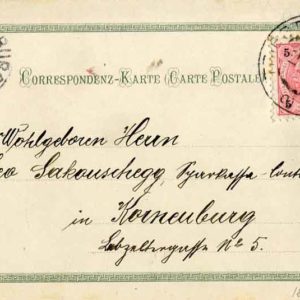 CORRESPONDENZ-KARTE (CARTE POSTALE
Wohlgeboren Herrn
eo Sakouschegg, Sparkassa-Cont
in Korneuburg
Lebzeltergasse No 5.